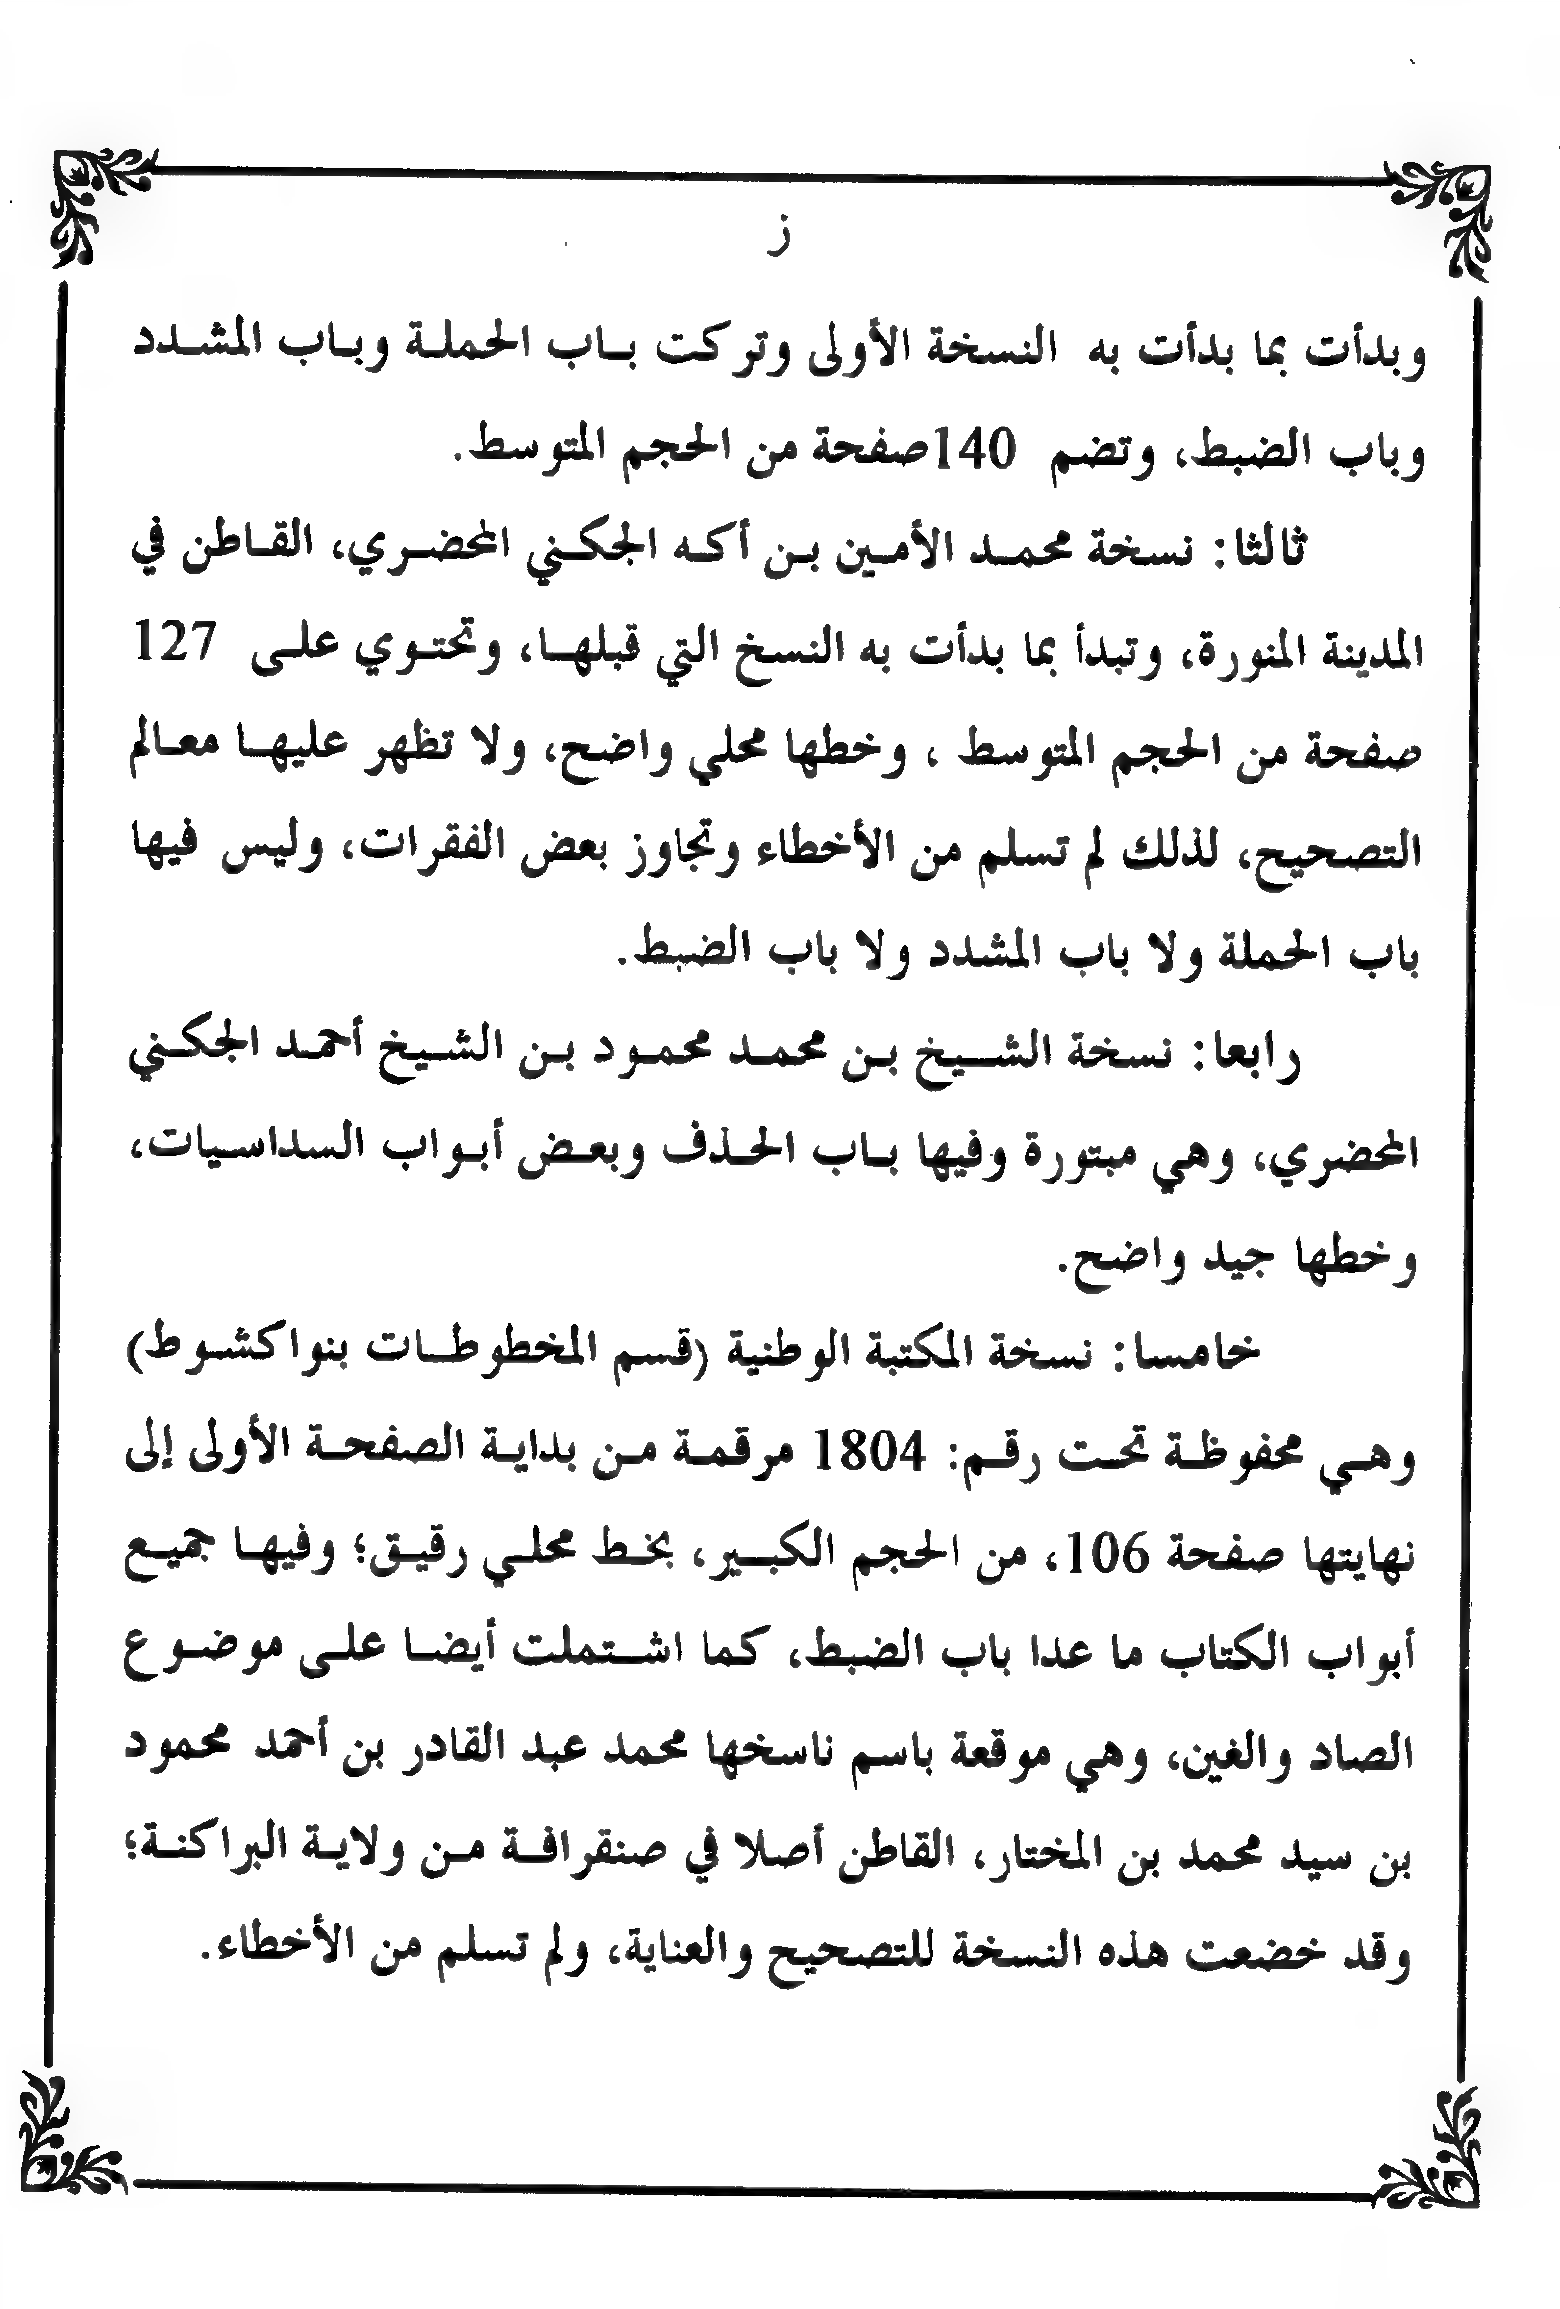 ز
وبدأت بما بدأت به النسخة الأولى وتركت باب الحملة وباب المشدد
وباب الضبط، وتضم 140صفحة من الحجم المتوسط.
ثالثا: نسخة محمد الأمين بن أكه الجكني المحضري، القاطن في
المدينة المنورة، وتبدأ بما بدأت به النسخ التي قبلها، وتحتوي على 127
صفحة من الحجم المتوسط ، وخطها محلي واضح، ولا تظهر عليها معالم
التصحيح، لذلك لم تسلم من الأخطاء وتجاوز بعض الفقرات، وليس فيها
باب الحملة ولا باب المشدد ولا باب الضبط.
رابعا: نسخة الشيخ بن محمد محمود بن الشيخ أحمد الجكني
المحضري، وهي مبتورة وفيها باب الحذف وبعض أبواب السداسيات،
وخطها جيد واضح.
خامسا: نسخة المكتبة الوطنية (قسم المخطوطات بنواكشوط)
وهي محفوظة تحت رقم: 1804 مرقمة من بداية الصفحة الأولى إلى
نهايتها صفحة 106، من الحجم الكبير، بخط محلي رقيق؛ وفيها جميع
أبواب الكتاب ما عدا باب الضبط، كما اشتملت أيضا على موضوع
الصاد والغين، وهي موقعة باسم ناسخها محمد عبد القادر بن أحمد محمود
بن سيد محمد بن المختار، القاطن أصلا في صنقرافة من ولاية البراكنة؛
وقد خضعت هذه النسخة للتصحيح والعناية، ولم تسلم من الأخطاء.